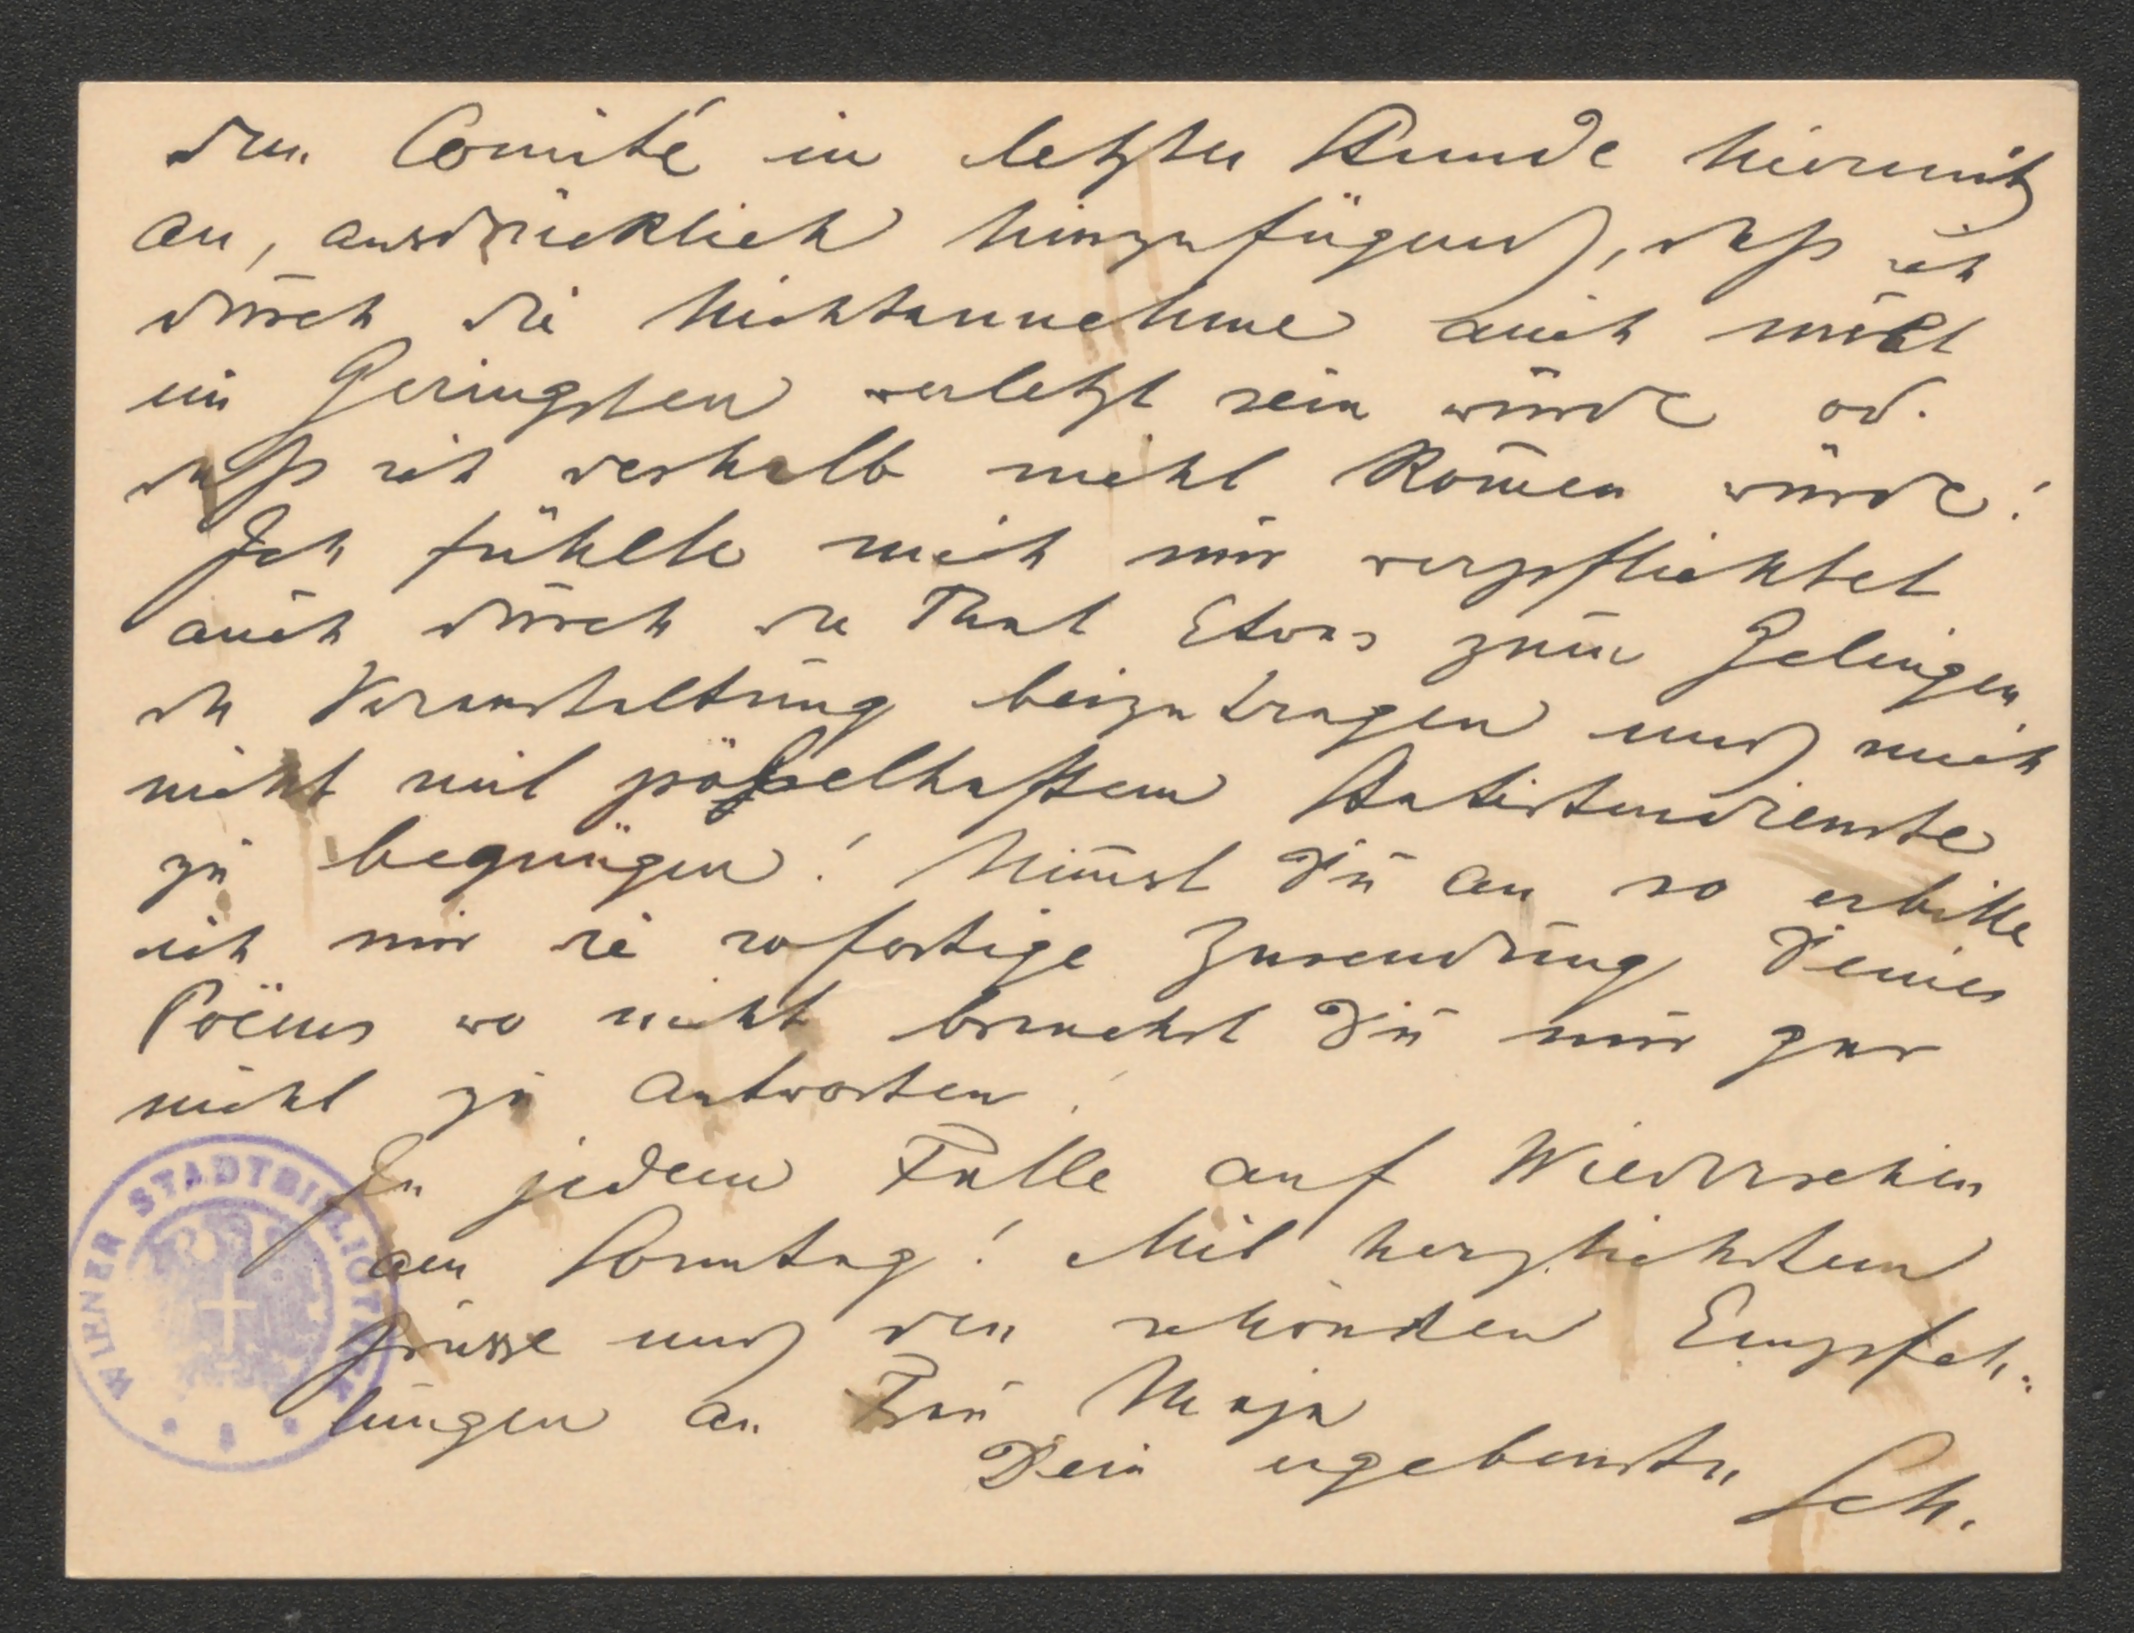 dem Comité in letzter Stunde hiermit
an, ausdrücklich hinzufügend, daß ich
durch die Nichtannahme auch nicht
im Geringsten verletzt sein würde od.
daß ich deshalb nicht kom̄en würde!
Ich fühlte mich nur verpflichtet
auch durch die That Etwas zum Gelingen
der Veranstaltung beizutragen und mich
nicht mit pöbelhaftem Statistendienste
zu begnügen! Nim̄st Du an so erbitte
ich mir die sofortige Zusendung Deines
Poëms wo nicht brauchst Du mir gar
nicht zu antworten!
In jedem Falle auf Wiedersehen
am Sonntag! Mit herzlichstem
Grusse und den schönsten Empfeh-
lungen an Frau Maja
Dein ergebenster Sch.
WIENER STADTBIBLIOTHEK